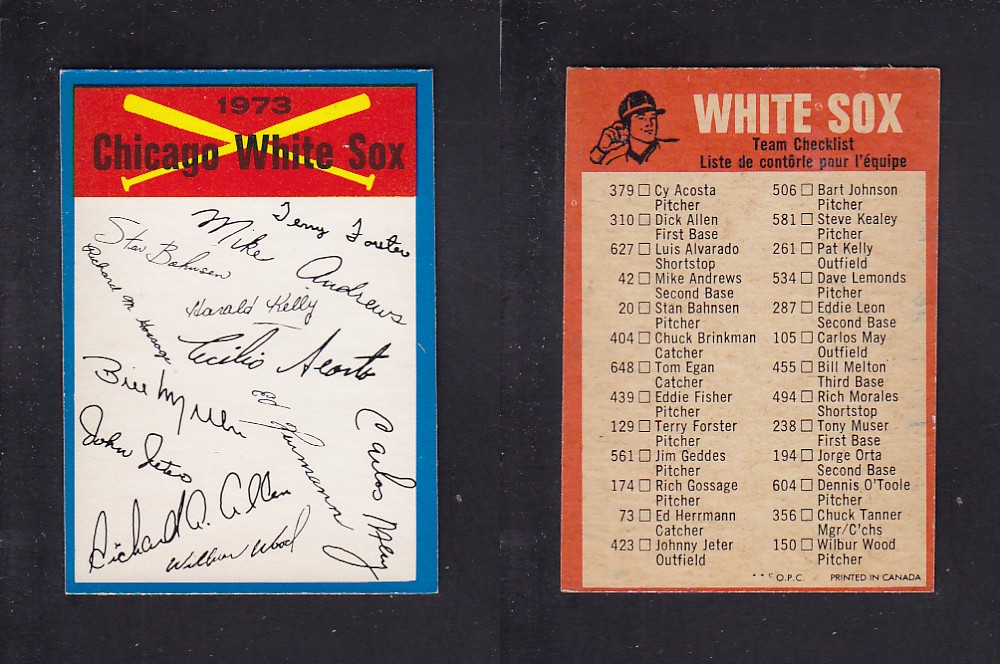 1973
Chicago White Sox
Terry Forster
Mike Andrews
Stan Bahnsen
Richard M. Gossage
Harold Kelly
Cecilio Acosta
Bill Melton
Ed Herrmann
John Jeter
Carlos May
Richard A. Allen
Wilbur Wood
WHITE SOX
Team Checklist
Liste de contôrle pour l'équipe
379 □ Cy Acosta
Pitcher
310 □ Dick Allen
First Base
627 □ Luis Alvarado
Shortstop
42 □ Mike Andrews
Second Base
20 □ Stan Bahnsen
Pitcher
404 □ Chuck Brinkman
Catcher
648 □ Tom Egan
Catcher
439 □ Eddie Fisher
Pitcher
129 □ Terry Forster
Pitcher
561 □ Jim Geddes
Pitcher
174 □ Rich Gossage
Pitcher
73 □ Ed Herrmann
Catcher
423 □ Johnny Jeter
Outfield
506 □ Bart Johnson
Pitcher
581 □ Steve Kealey
Pitcher
261 □ Pat Kelly
Outfield
534 □ Dave Lemonds
Pitcher
287 □ Eddie Leon
Second Base
105 □ Carlos May
Outfield
455 □ Bill Melton
Third Base
494 □ Rich Morales
Shortstop
238 □ Tony Muser
First Base
194 □ Jorge Orta
Second Base
604 □ Dennis O'Toole
Pitcher
356 □ Chuck Tanner
Mgr/C'chs
150 □ Wilbur Wood
Pitcher
O.P.C. PRINTED IN CANADA